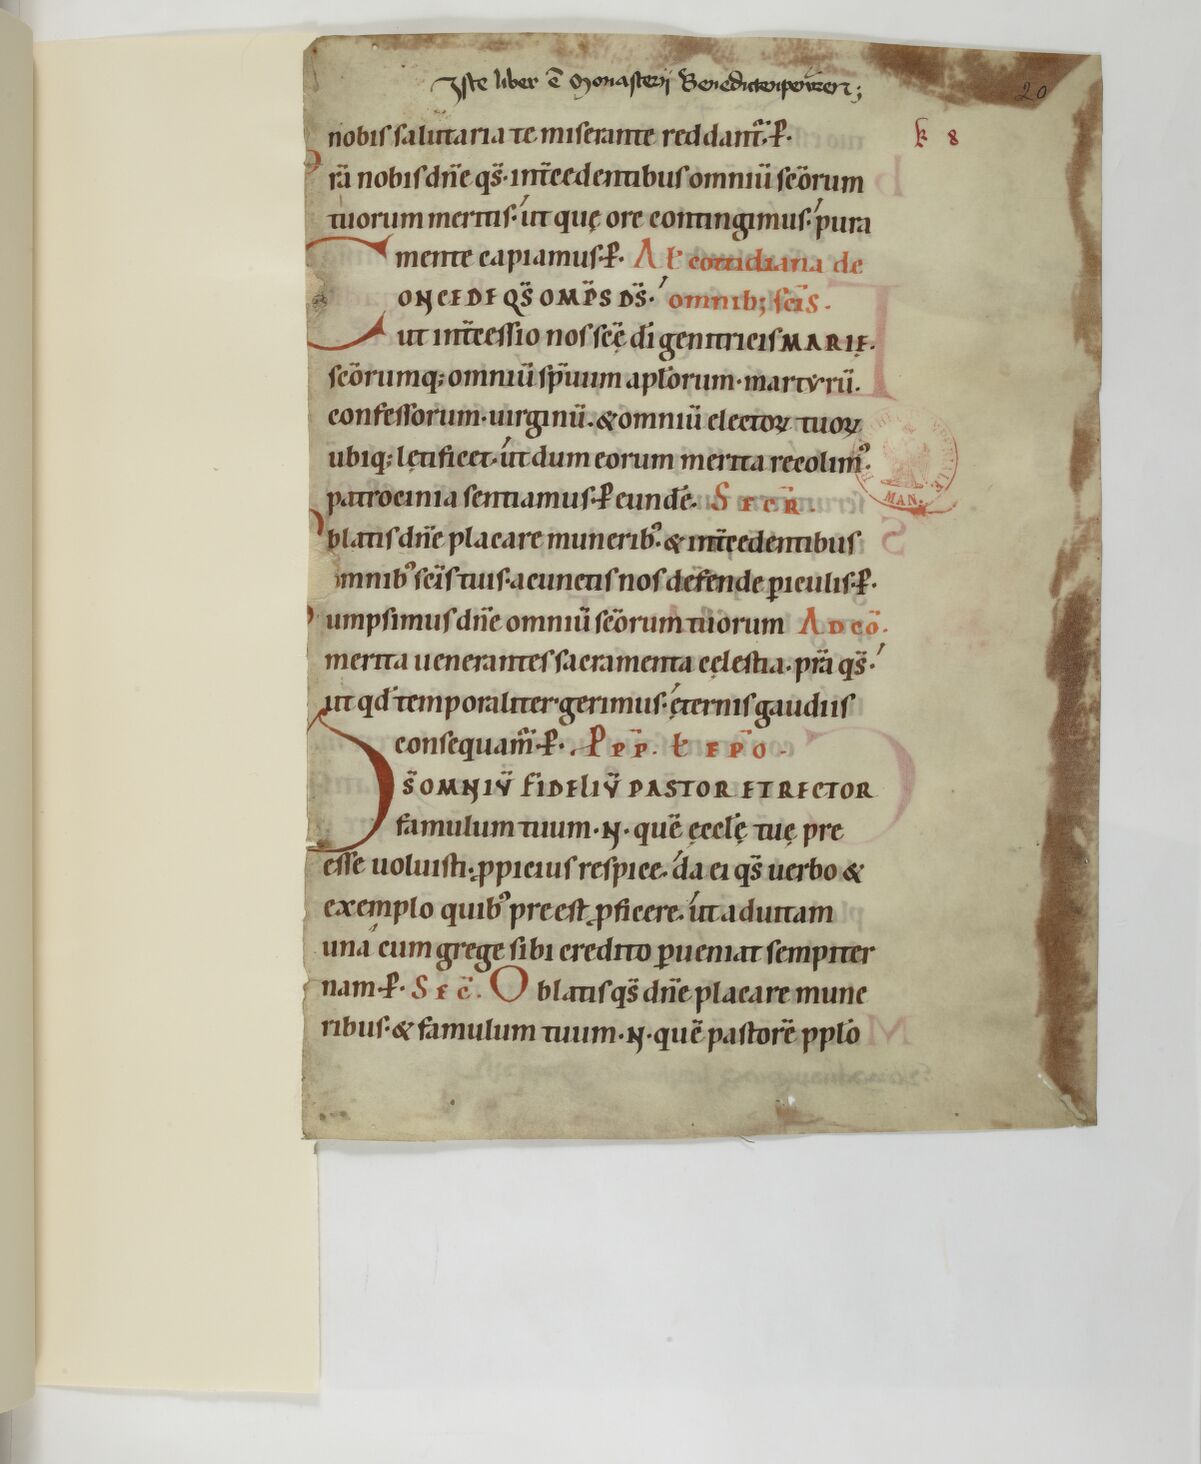 Iste liber ē Monasterij Benedictenpewren;
20
nobis salutaria te miserante reddant᷑. P̄.
k 8
rā nobis dn̄e qs̄. int̄cedentibus omniū sc̄orum
tuorum meritis. ut quę ore contingimus. pura
mente capiamus. P̄. Al̄ cottidiana de
ONCEDE QS̄ OMP̄S DS̄. omnib; sc̄is.
ut int̄cessio nos sc̄ę dī genitricis MARIĘ.
sc̄orumq; omniū sp̄uum apl̄orum. martyrū.
confessorum. uirginū. & omniū electoꝝ tuoꝝ
ubiq; lętificet. ut dum eorum merita recolimꝰ.
patrocinia sentiamus. P̄ eundē. SECR̄.
blatis dn̄e placare muneribꝰ. & int̄cedentibus
omnibꝰ sc̄is tuis. a cunctis nos defende ꝑiculis. P̄.
umpsimus dn̄e omniū sc̄orum tuorum AD CŌ.
merita uenerantes sacramenta cęlestia. prā qs̄.
ut qd̄ temporaliter gerimus. ęternis gaudiis
consequam᷑. P̄. P̄ PP̄. ł EPŌ.
S̄ OMNIV̄ FIDELIV̄ PASTOR ET RECTOR
famulum tuum .N. quē ęccl̄ę tuę pre
esse uoluisti. ꝓpicius respice. da ei qs̄ uerbo &
exemplo quibꝰ preest ꝓficere. ut ad uitam
una cum grege sibi credito ꝑueniat sempiter
nam. P̄. SEC̄. Oblatis qs̄ dn̄e placare mune
ribus. & famulum tuum .N. quē pastorē ppl̄o